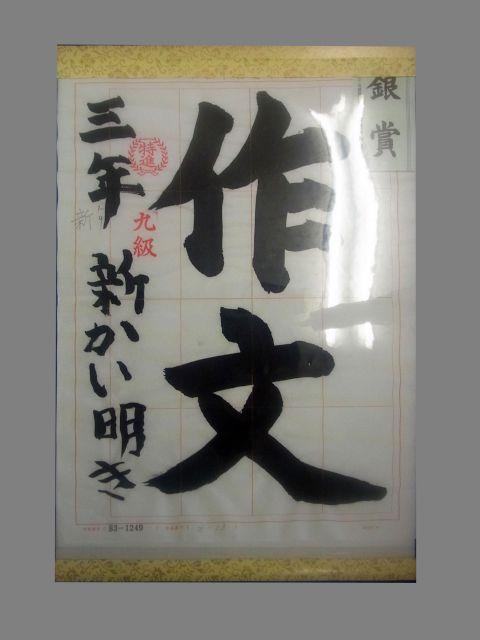 銀賞
作文
特進
九級
三年 新かい明き
新
B3-1249